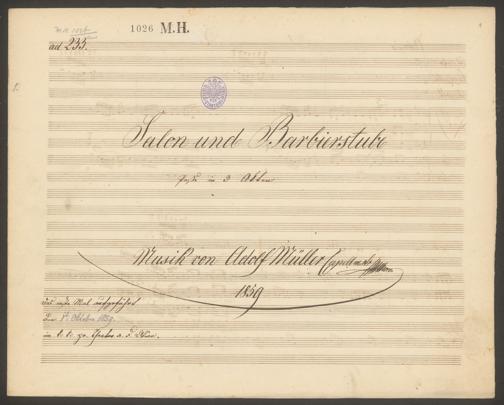 1026 M.H.
ad 233.
Salon und Barbierstube
Posse in 3 Akten
Musik von Adolf Müller Capellmstr
1859
Das erste Mal aufgeführt
Den 8t Oktober 1859.
im k. k. pr. Theater a. d. Wien.